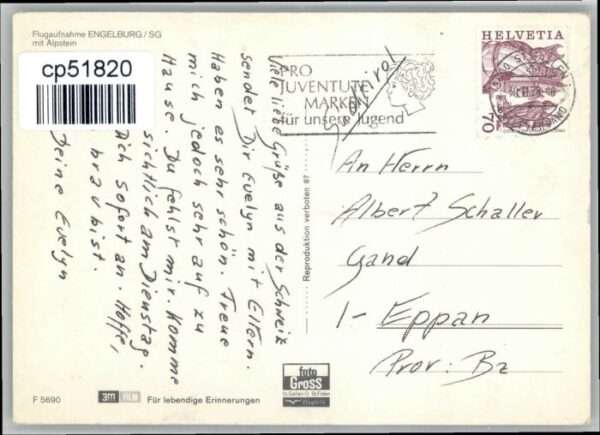 Flugaufnahme ENGELBURG / SG
mit Alpstein
cp51820
Viele liebe Grüße aus der Schweiz
sendet Dir Evelyn mit Eltern.
Haben es sehr schön. Freue
mich jedoch sehr auf zu
Hause. Du fehlst mir. Komme
sichtlich am Dienstag.
Dich sofort an. Hoffe,
brav bist.
Deine Evelyn
PRO
JUVENTUTE
MARKEN
für unsere Jugend
HELVETIA
70
An Herrn
Albert Schaller
Gand
I- Eppan
Prov. Bz
Reproduktion verboten 87
foto
GROSS
St. Gallen
F 5690
3M FILM Für lebendige Erinnerungen